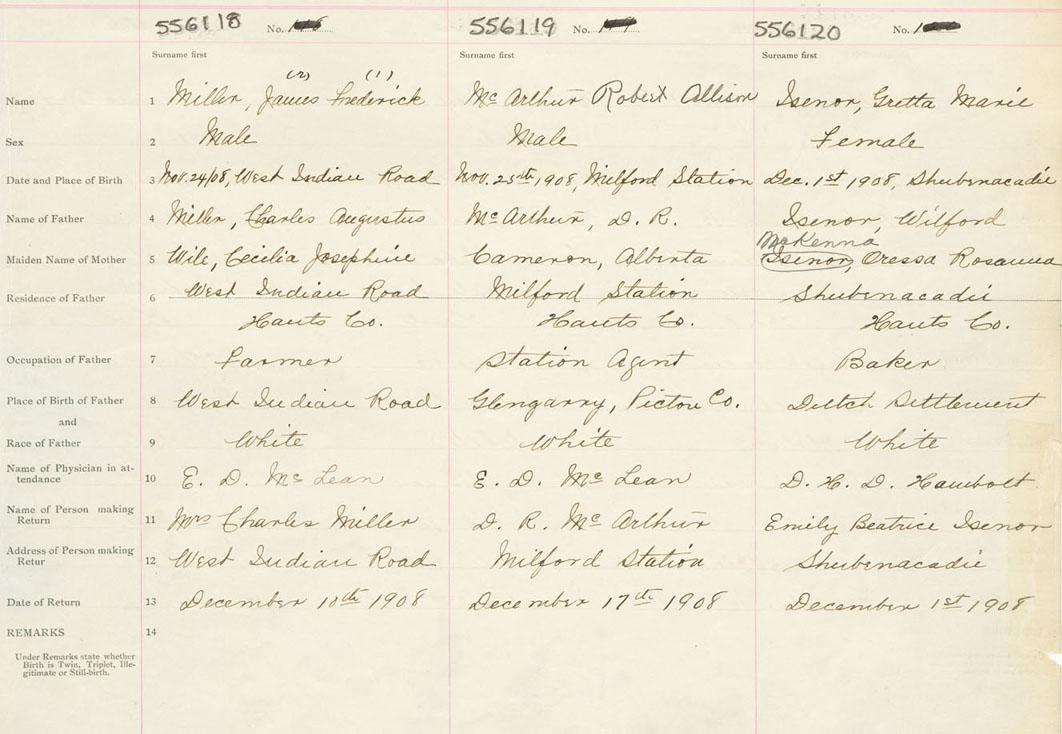 556118 No. 556119 No. 556120 No.
Surname first Surname first Surname first
(2) (1)
Name 1 Miller, James Frederick McArthur Robert Allison Isenor, Gretta Marie
Sex 2 Male Male Female
Date and Place of Birth 3 Nov. 24/08, West Indian Road Nov. 25th, 1908, Milford Station Dec. 1st 1908, Shubenacadie
Name of Father 4 Miller, Charles Augustus McArthur, D. R. Isenor, Wilford
McKenna
Maiden Name of Mother 5 Wile, Cecilia Josephine Cameron, Alberta Isenor, Oressa Rosanna
Residence of Father 6 West Indian Road Milford Station Shubenacadie
Hants Co. Hants Co. Hants Co.
Occupation of Father 7 Farmer Station Agent Baker
Place of Birth of Father 8 West Indian Road Glengarry, Pictou Co. Dutch Settlement
and
Race of Father 9 White White White
Name of Physician in at-
tendance 10 E. D. McLean E. D. McLean D. H. D.
Name of Person making
Return 11 Mrs Charles Miller D. R. McArthur Emily Beatrice Isenor
Address of Person making
Retur 12 West Indian Road Milford Station Shubenacadie
Date of Return 13 December 10th 1908 December 17th 1908 December 1st 1908
REMARKS 14
Under Remarks state whether
Birth is Twin, Triplet, Ille-
gitimate or Still-birth.